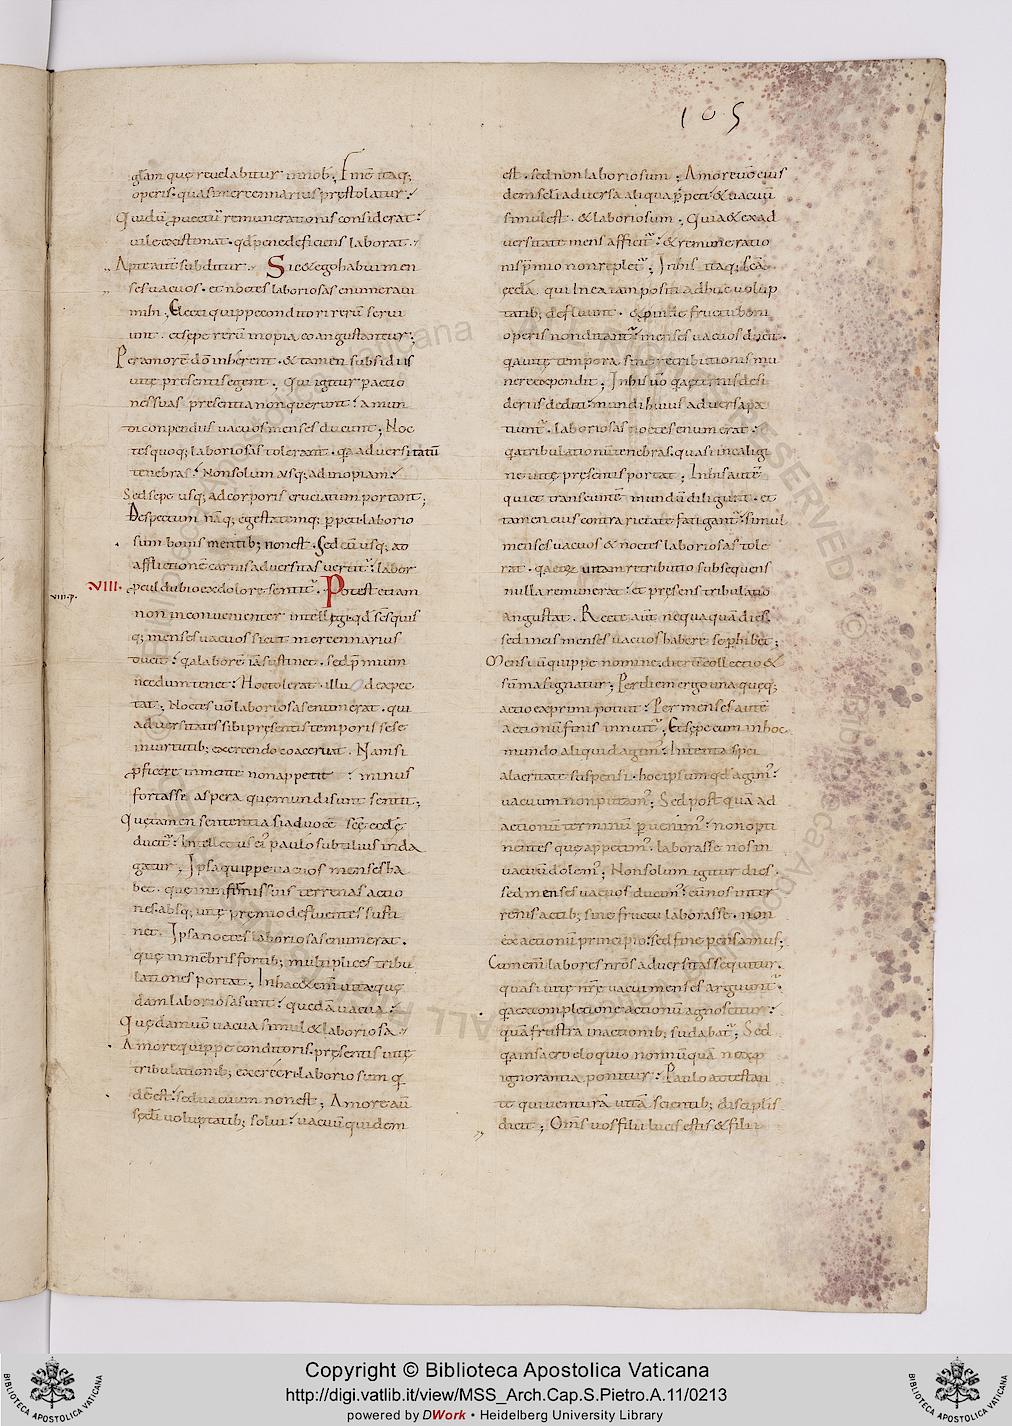 105
gl̄am quę reuelabitur innob̄. Fine itaq;
operis. quasi mercennarius pręstolatur.
Qui dū ꝓuectū remunerationis considerat.
uile existimat. qd̄ penedeficiens laborat.
Apte aut̄ subditur. Sic & ego habui men
ses uacuos. et noctes laboriosas enumeraui
mihi. Electi quippe conditori rerū serui
unt. et sepe rerū inopia coangustantur.
Per amorē dō inherent. & tamen subsidiis
uitę presentis egent. Qui igitur p actio
nes suas presentia non querunt. a mun
di conpendiis uacuos menses ducunt; Noc
tes quoq; laboriosas tolerant. qa aduersitatū
tenebras. Non solum usq; ad inopiam.
Sed sepe usq; ad corporis cruciatum portant;
Despectum nāq; egestatemq; ꝑpeti. laborio
sum bonis mentib; non est. Sed cū usq; ad
afflictionē carnis aduersitas uertit. labor
VIII. ꝓcul dubio ex dolore sentit. Potest etiam
viiii.p.
non inconuenienter intellegi. qd̄ sc̄s quis
q; menses uacuos sicut mercennarius
ducit. qa laborē iā sustinet. sed p̄mium
necdum tenet. Hoc tolerat. illud expec
tat; Noctes uō laboriosas enumerat. qui
aduersitates sibi pręsentis temporis sese
in uirtutib; exercendo coaceruat. Nam si
ꝓficere in mente non appetit. minus
fortasse aspera quę mundi sunt sentit;
Quę tamen sententia si ad uocē sc̄ę ecclę
ducit. intellectus eī paulo subtilius inda
gatur. Ipsa quippe uacuos menses ha
bet. quę in infirmis suis terrenas actio
nes. absq; uitę premio defluentes susti
net. Ipsa noctes laboriosas enumerat.
quę in mēbris fortib; multiplices tribu
lationes portat; In hac & enī uita quę
dam laboriosa sunt. quedā uacua.
Quędam uō uacua simul & laboriosa.
Amore quippe conditoris. pręsentis uitę
tribulationib; exerceri. laboriosum q
dē est. sed uacuum non est; Amore aū
sc̄li uoluptatib; solui. uacuū quidem
est. sed non laboriosum; Amore uō eius
dem sc̄li aduersa aliqua ꝑpeti. & uacuū
simul est. & laboriosum. Quia & ex ad
uersitate mens afficit. & remuneratio
nis p̄mio non replet; In his itaq; sc̄a
ęcclā. qui in ea iam positi adhuc uolup
tatib; defluunt. & ꝓinde fructu boni
operis non ditant. menses uacuos ducit.
qa uitę tempora. sine retributionis mu
nere expendit; In his uō q aętnis desi
deriis dediti. mundi huius aduersa pa
tiunt. laboriosas noctes enumerat.
qa tribulationū tenebras. quasi in caligi
ne uitę pręsentis portat; In his autē
qui et transeuntē mundū diligunt. et
tamen eius contrarietate fatigant. simul
menses uacuos & noctes laboriosas tole
rat. qa eorum uitam retributio subsequens
nulla remunerat. et pręsens tribulatio
angustat. Recte aūt nequaquā dies.
sed in eis menses uacuos habere se ꝑhibet;
Mensiū quippe nomine. dierū collectio &
sūma signatur; Per diem ergo una quęq;
actio exprimi potuit. Per menses autē
actionū finis innuit; Et sepe cum in hoc
mundo aliquid agim. Intenta spei
alacritate suspensi. hoc ipsum qd̄ agim.
uacuum non putam; Sed post quā ad
actionū terminū ꝑuenim. non opti
nentes quę appetim. laborasse nos in
uacuū dolem; Non solum igitur dies.
sed menses uacuos ducim. cū nos in ter
renis actib; sine fructu laborasse. non
ex actionū principio. sed fine pensamus;
Cum enī labores nr̄os aduersitas sequitur.
quasi uitę nr̄ę uacui menses arguunt.
qa ex completione actionū agnoscitur.
quā frustra in actionib; sudabat. Sed
qa in sacro eloquio nonnūquā nox ꝓ
ignorantia ponitur. Paulo attestan
te qui uenturā uitā scientib; discipulis
dicit; Oms̄ uos filii lucis estis & filii
Copyright © Biblioteca Apostolica Vaticana
http://digi.vatlib.it/view/MSS_Arch.Cap.S.Pietro.A.11/0213
powered by DWork • Heidelberg University Library